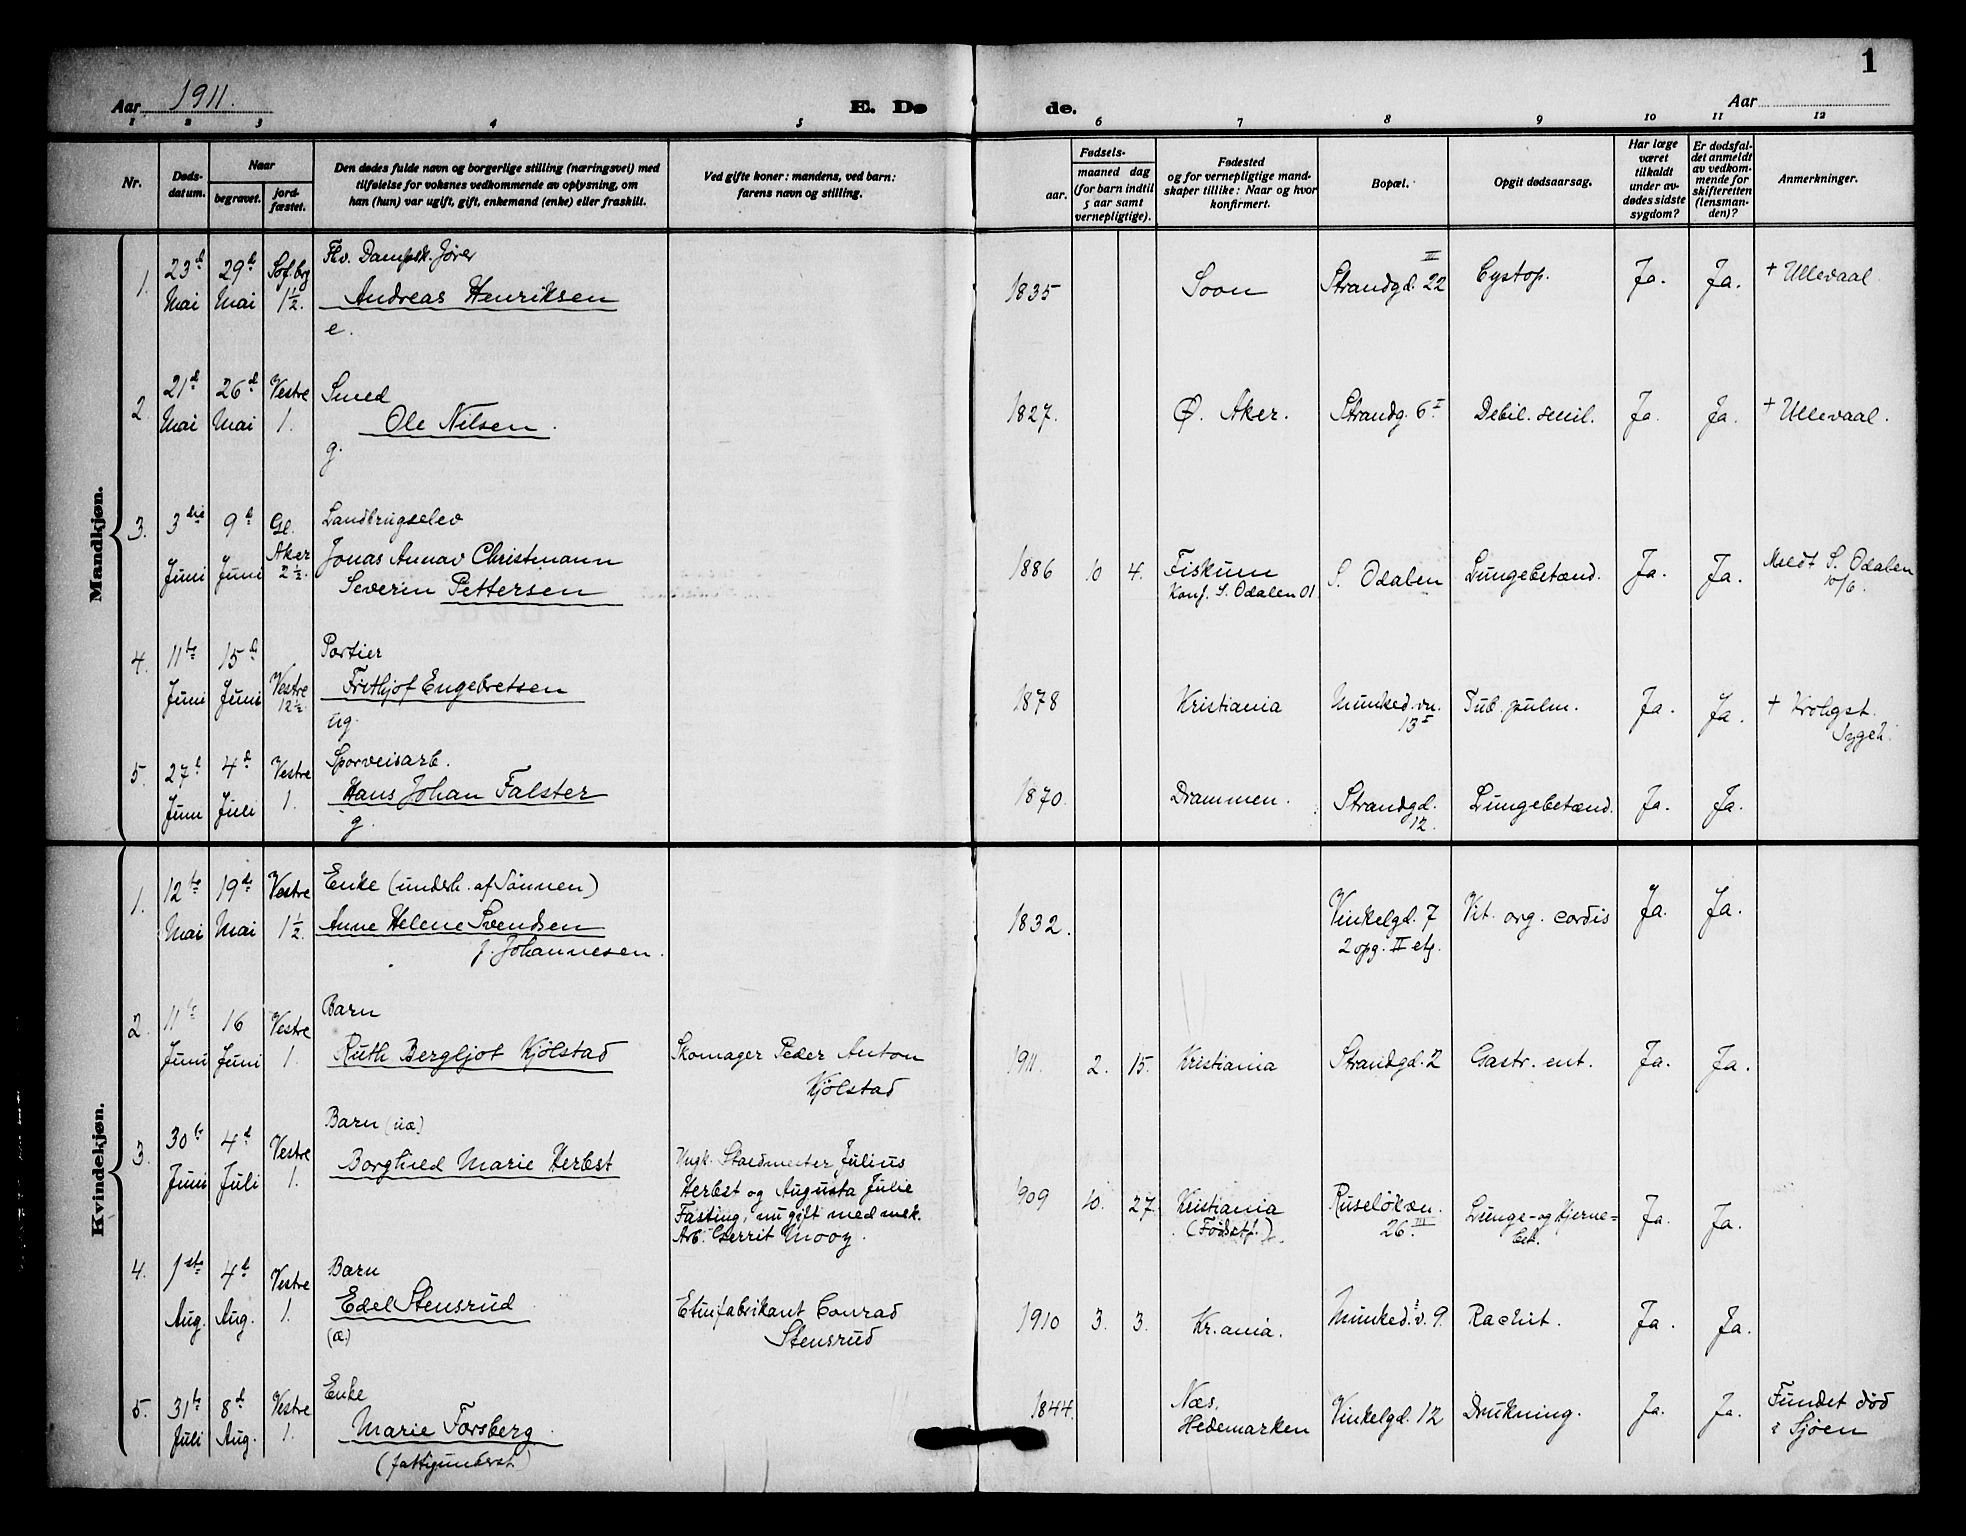 1
Aar 1911.
E. Dø
de.
Aar
1 2 3 4 5 6 7 8 9 10 11 12
Nr.
Døds-
datum.
Naar
begravet.
jord-
fæstet.
Den dødes fulde navn og borgerlige stilling (næringsvei) med
tilføielse for voksnes vedkommende av oplysning, om
han (hun) var ugift, gift, enkemand (enke) eller fraskilt.
Ved gifte koner: mandens, ved barn:
farens navn og stilling.
Fødsels-
aar.
maaned dag
(for barn indtil
5 aar samt
vernepligtige).
Fødested
og for vernepligtige mand-
skaper tillike: Naar og hvor
konfirmert.
Bopæl.
Opgit dødsaarsag.
Har læge
været
tilkaldt
under av-
dødes sidste
sygdom?
Er dødsfal-
det anmeldt
av vedkom-
mende for
skifteretten
(lensman-
den)?
Anmerkninger.
Mandkjøn.
1. 23d Mai 29d Mai Sof.brg 1½.
Fhv. Dampsk.fører
Andreas Henriksen
e.
1835 Soon Strandgd. 22 III Cystop. Ja. Ja. + Ullevaal.
2. 21d Mai 26d Mai Vestre 1.
Smed
Ole Nilsen.
g.
1827. Ø. Aker. Strandg. 6 I Debil. senil. Ja. Ja. + Ullevaal.
3. 3die Juni 9d Juni Gl. Aker 2½.
Landbrugselev
Jonas Annav Christmann
Severin Pettersen
1886 10 4. Fiskum S. Odalen Lungebetænd. Ja. Ja. Meldt S. Odalen
Konf. S. Odalen 01
10/6.
4. 11te Juni 15d Juni Vestre 12½.
Portier
Frithjof Engebretsen
ug.
1878 Kristiania Munked.vn. 13 I Tub. pulm. Ja. Ja. + Krohgst.
Sygeh.
5. 27d Juni 4d Juli Vestre 1.
Sporveisarb.
Hans Johan Falster
g.
1870. Drammen. Strandgd. 12. Lungebetænd. Ja. Ja.
Kvindekjøn.
1. 12te Mai 19d Mai Vestre 1½.
Enke (underh. af Sønnen)
Anne Helene Svendsen
f. Johannesen.
1832. Vinkelgd. 7 Vit. org. cordis Ja. Ja.
2 opg. II etg.
2. 11te Juni 16 Juni Vestre 1.
Barn
Ruth Bergljot Kjölstad
Skomager Peder Anton
Kjölstad
1911. 2. 15. Kristiania Strandgd. 2 Gastr. ent. Ja. Ja.
3. 30te Juni 4d Juli Vestre 1.
Barn (uæ)
Borghild Marie Herbst
Ungk. Staldmester Julius
Herbst og Augusta Julie
Fasting, nu gift med mek.
Arb. Gerrit Mooy.
1909 10. 27. Kristiania Ruseløkvn. 26 III Lunge- og Hjerne=
(Fødsst.)
bet. Ja. Ja.
4. 1ste Aug. 4d Aug. Vestre 1.
Barn
Edel Stensrud
(æ)
Etuifabrikant Conrad
Stensrud
1910 3. 3. Kr.ania. Munked.v. 9. Rachit. Ja. Ja.
5. 31te Juli 8d Aug. Vestre 1.
Enke
Marie Forsberg.
(fattigunderst.)
1844. Næs, Vinkelgd. 12 Drukning. Ja. Ja. Fundet död
Hedemarken
i Sjøen